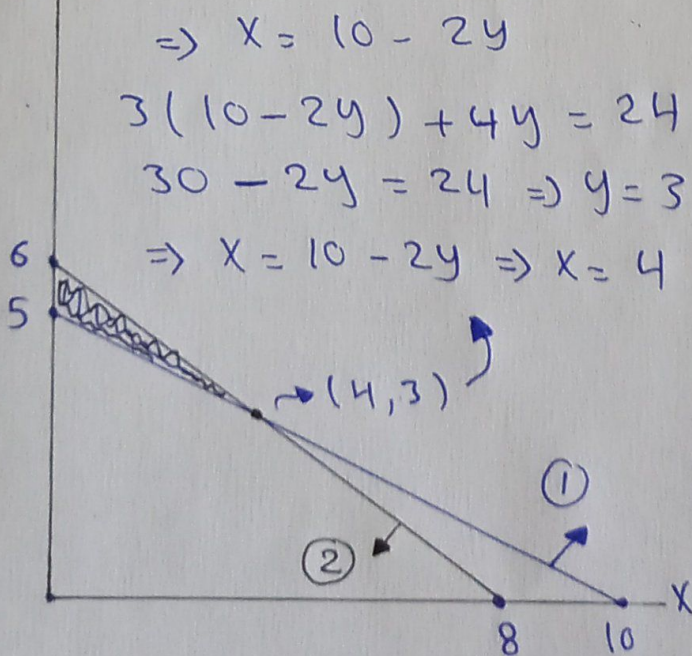 => x = 10 - 2y
3(10-2y) + 4y = 24
30 - 2y = 24 => y = 3
=> x = 10 - 2y => x = 4
6
5
(4,3)
①
②
x
8
10